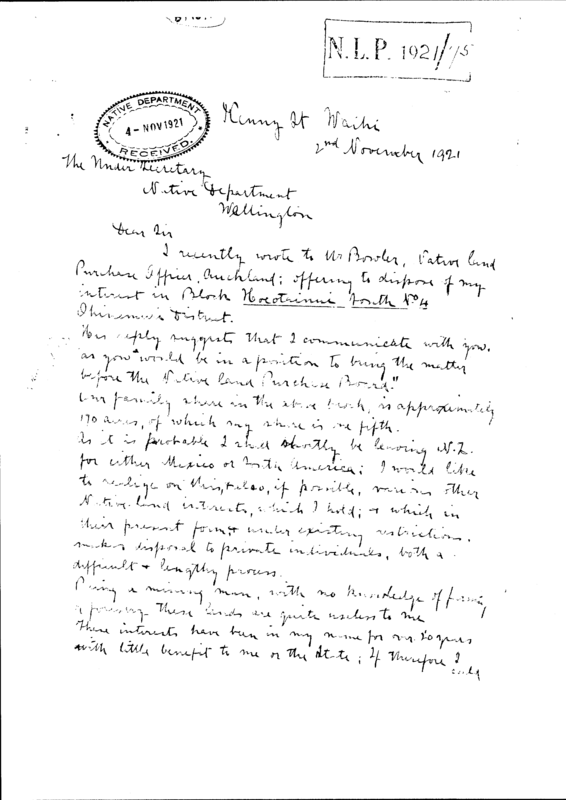 N.L.P. 1921/75
NATIVE DEPARTMENT
4 - NOV 1921
RECEIVED
Kenny St Waihi
2nd November 1921
The Under Secretary
Native Department
Wellington
Dear Sir
I recently wrote to Mr Bowler, Native land
Purchase Officer, Auckland; offering to dispose of my
interest in Block Hoeotainui South No 4
Ohinemuri District.
His reply suggests that I communicate with you.
as you "would be in a position to bring the matter
before the Native land Purchase Board."
Our family share in the above block, is approximately
170 acres, of which my share is one fifth.
As it is probable I shall shortly be leaving N.Z.
for either Mexico or South America; I would like
to realize on this, & also, if possible, various other
Native land interests, which I hold; & which in
their present form & under existing restrictions.
makes disposal to private individuals, both a
difficult & lengthy process.
Being a mining man, with no knowledge of farming
these lands are quite useless to me
These interests have been in my name for over 20 years
with little benefit to me or the State; If therefore I
could